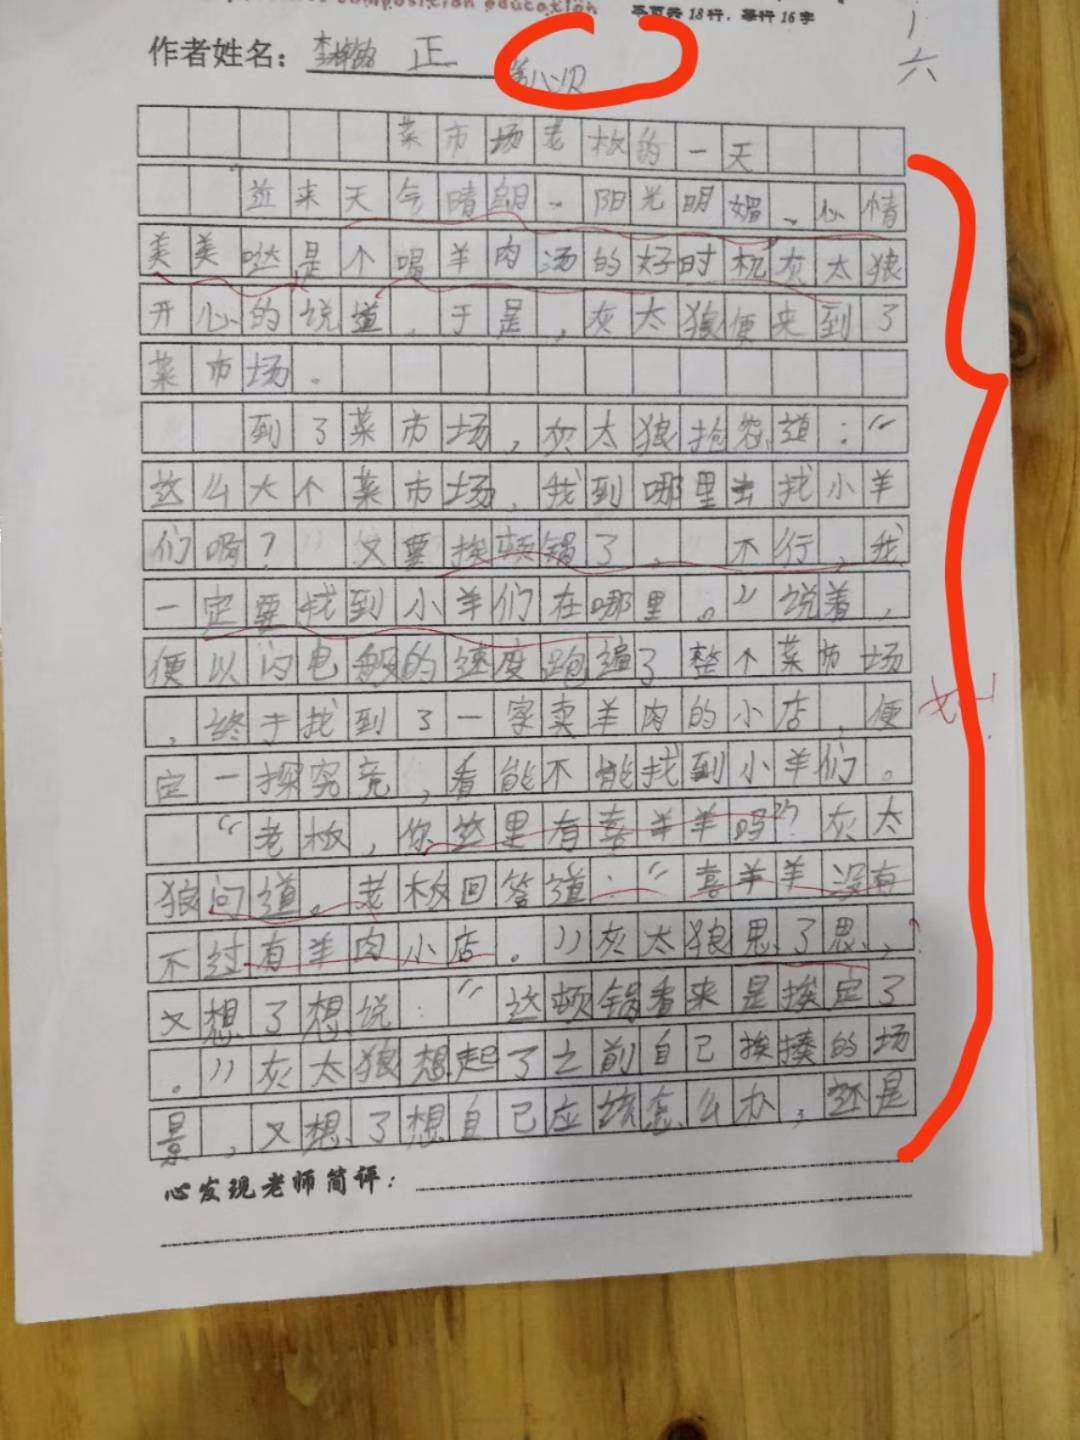 composition education
每页共18行，每行16字
作者姓名： 正
第八次
六
菜市场老板的一天
近来天气晴朗、阳光明媚、心情
美美哒是个喝羊肉汤的好时机灰太狼
开心的说道，于是，灰太狼便来到了
菜市场。
到了菜市场，灰太狼抱怨道：“
这么大个菜市场，我到哪里去找小羊
们啊？”又要挨顿锅了，不行，我
一定要找到小羊们在哪里。”说着，
便以闪电般的速度跑遍了整个菜市场
，终于找到了一家卖羊肉的小店，便
定一探究竟，看能不能找到小羊们。
“老板，你这里有喜羊羊吗？”灰太
狼问道。老板回答道：“喜羊羊没有
不过有羊肉小店。”灰太狼思了思，
又想了想说：“这顿锅看来是挨定了
。”灰太狼想起了之前自己挨揍的场
景，又想了想自己应该怎么办，还是
心发现老师简评：